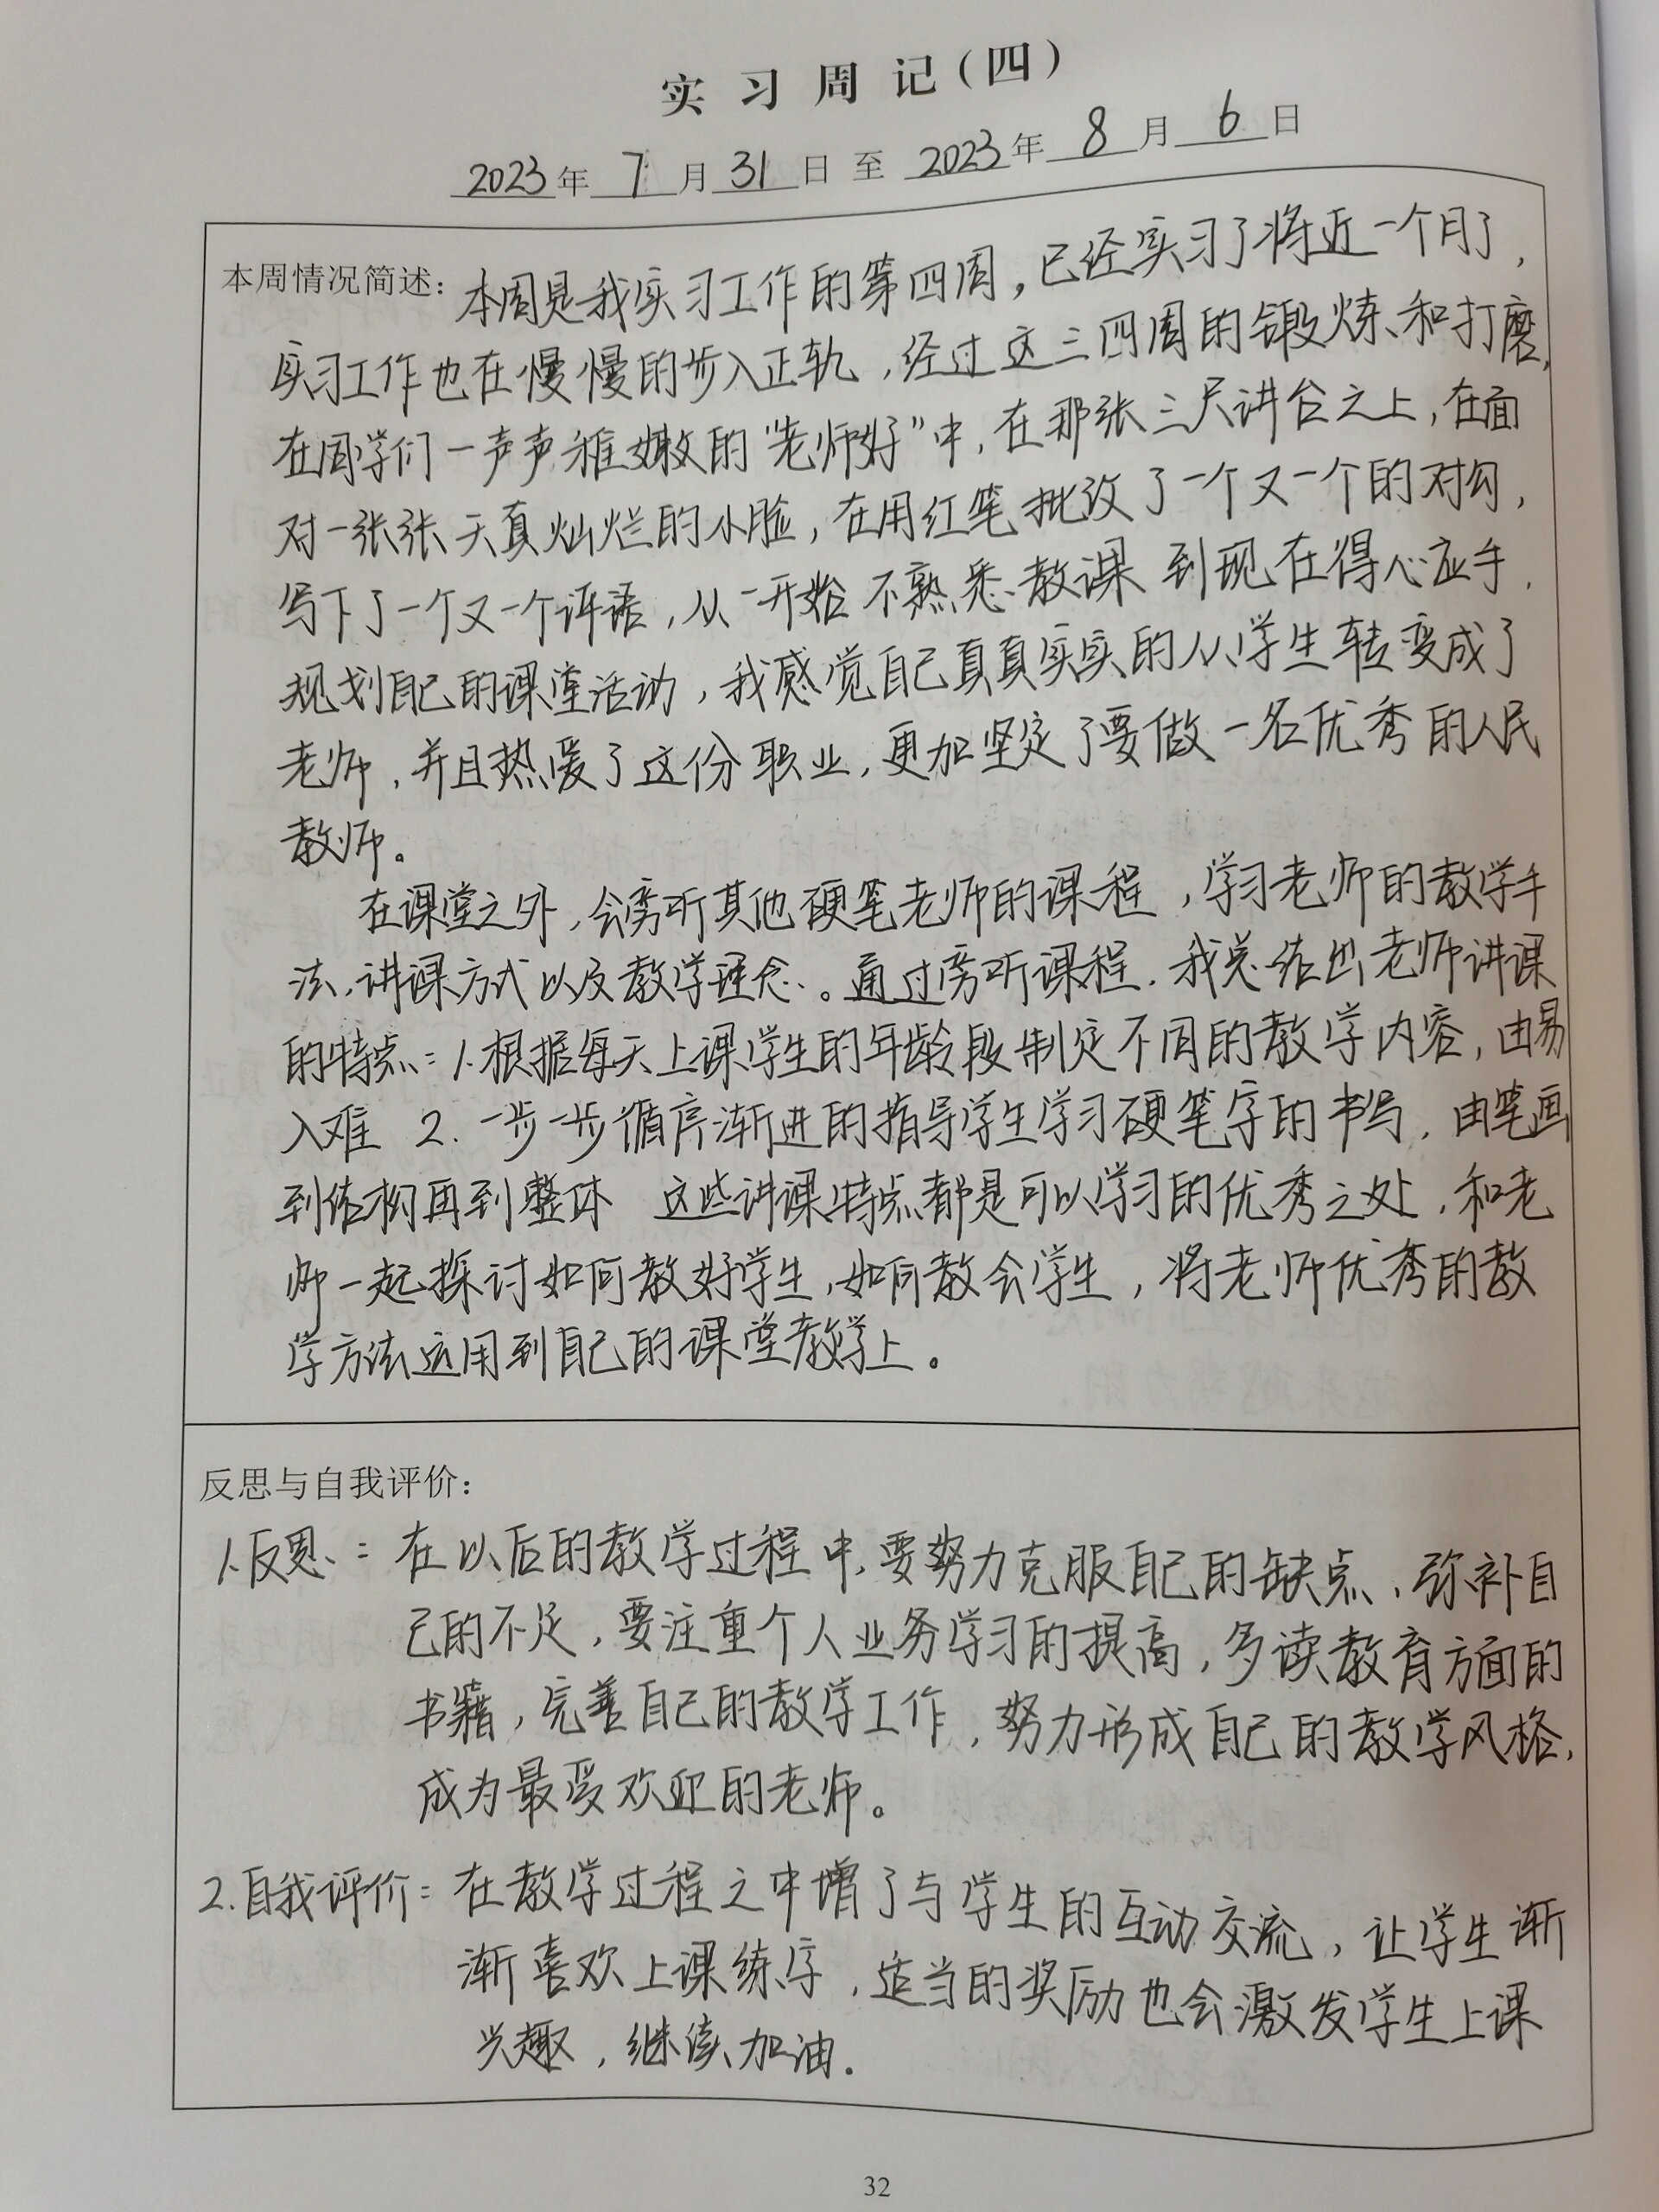 实习周记(四)
2023年7月31日至2023年8月6日
本周情况简述：本周是我实习工作的第四周，已经实习了将近一个月了，
实习工作也在慢慢的步入正轨，经过这三四周的锻炼和打磨，
在同学们一声声稚嫩的"老师好"中，在那张三尺讲台之上，在面
对一张张天真灿烂的小脸，在用红笔批改了一个又一个的对勾，
写下了一个又一个评语，从一开始不熟悉教课到现在得心应手，
规划自己的课堂活动，我感觉自己真真实实的从学生转变成了
老师，并且热爱了这份职业，更加坚定了要做一名优秀的人民
教师。
在课堂之外，会旁听其他硬笔老师的课程，学习老师的教学手
法，讲课方式以及教学理念。通过旁听课程，我总结出老师讲课
的特点：1.根据每天上课学生的年龄段制定不同的教学内容，由易
入难 2.一步一步循序渐进的指导学生学习硬笔字的书写，由笔画
到结构再到整体 这些讲课特点都是可以学习的优秀之处，和老
师一起探讨如何教好学生，如何教会学生，将老师优秀的教
学方法运用到自己的课堂教学上。
反思与自我评价：
1.反思：在以后的教学过程中，要努力克服自己的缺点、弥补自
己的不足，要注重个人业务学习的提高，多读教育方面的
书籍，完善自己的教学工作，努力形成自己的教学风格，
成为最受欢迎的老师。
2.自我评价：在教学过程之中增了与学生的互动交流，让学生渐
渐喜欢上课练字，适当的奖励也会激发学生上课
兴趣，继续加油.
32